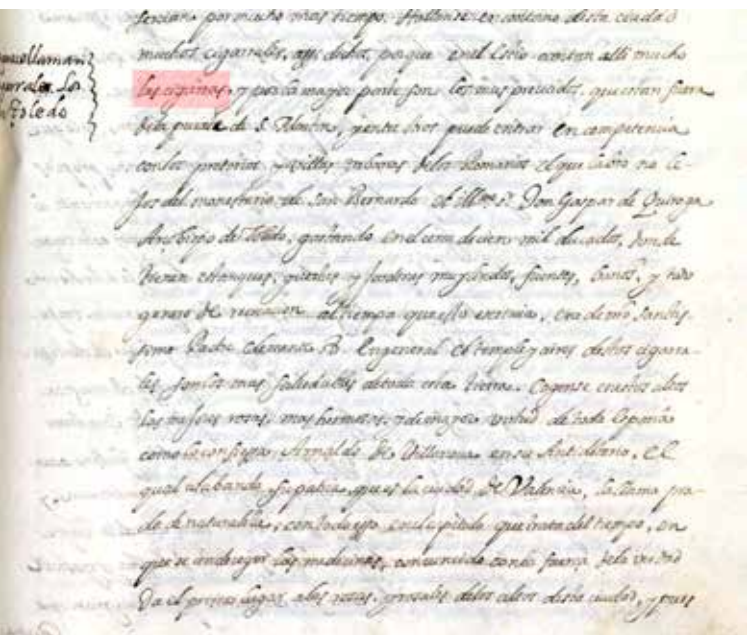 por mucho mas tiempo. Hallanse en contorno desta ciudad
muchos cigarrales, assi dichos, porque en el Estio cantan alli mucho
q̃ se llaman
las cigarras, y por la mayor parte son los mas preciados, que estan fuera
Toledo
de la puente de S. Martin, y entre otros puede entrar en competencia
con los pretorios y villas de los Romanos el que labro no le-
jos del monasterio de San Bernardo el illmo. Sr. Don Gaspar de Quiroga
Arçobispo de Toledo, gastando en el cien mil ducados, donde
tienen estanques, fuentes, baños, y todo
genero de al tiempo que esto escrivia, era de mo Sanctis-
simo Padre Clemente 8. En general el temple y aires destos cigarra-
les son los mas saludables de toda esta tierra. Cogense en estos altos
las rosas mas hermosas, y de mayor virtud de toda España
como lo confiessa Arnaldo de Villanova en su Antidotario, el
qual alabando su patria, que es la ciudad de Valencia, la llama pra-
do de naturaleza, con todo esso en el capitulo que trata del tiempo, en
que se an de coger las medicinas, convencido con la fuerça de la verdad
Da el primer lugar a las rosas, y rosales de los altos desta ciudad, y pues